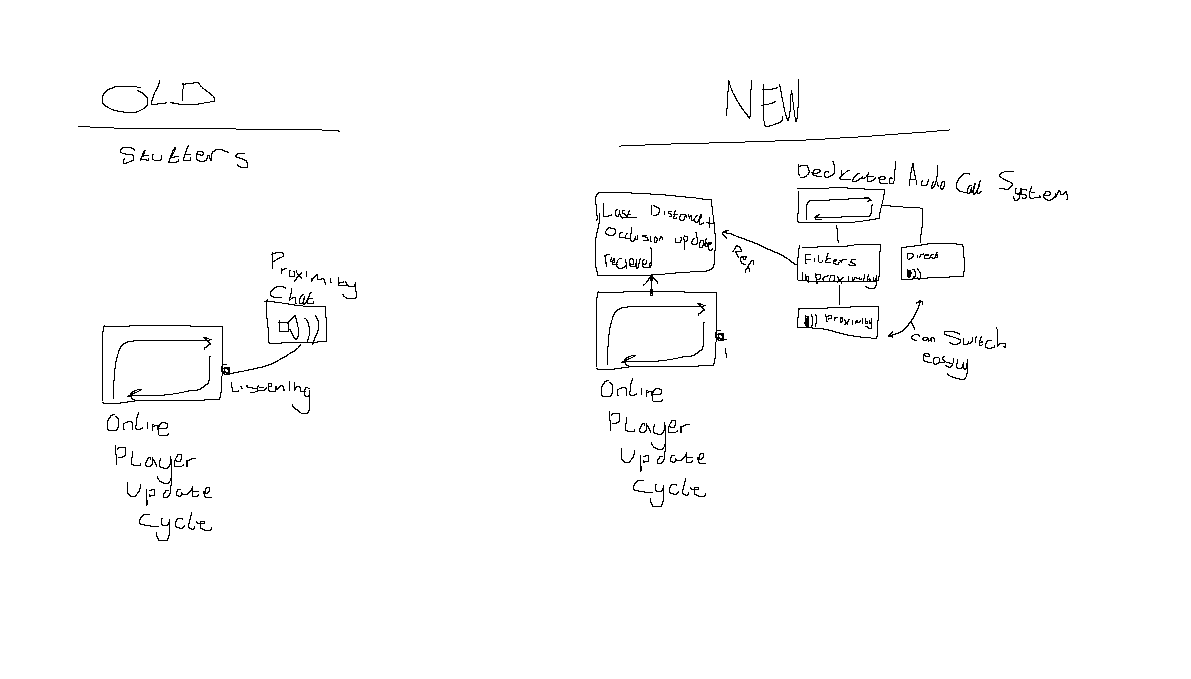 OLD
Stutters
Proximity
Chat
Listening
Online
Player
Update
Cycle
NEW
Dedicated Audio Call System
Last Distance +
Occlision update
recieved
Ref
Filters
in proximity
Direct
Proximity
can switch
easily
Online
Player
Update
Cycle